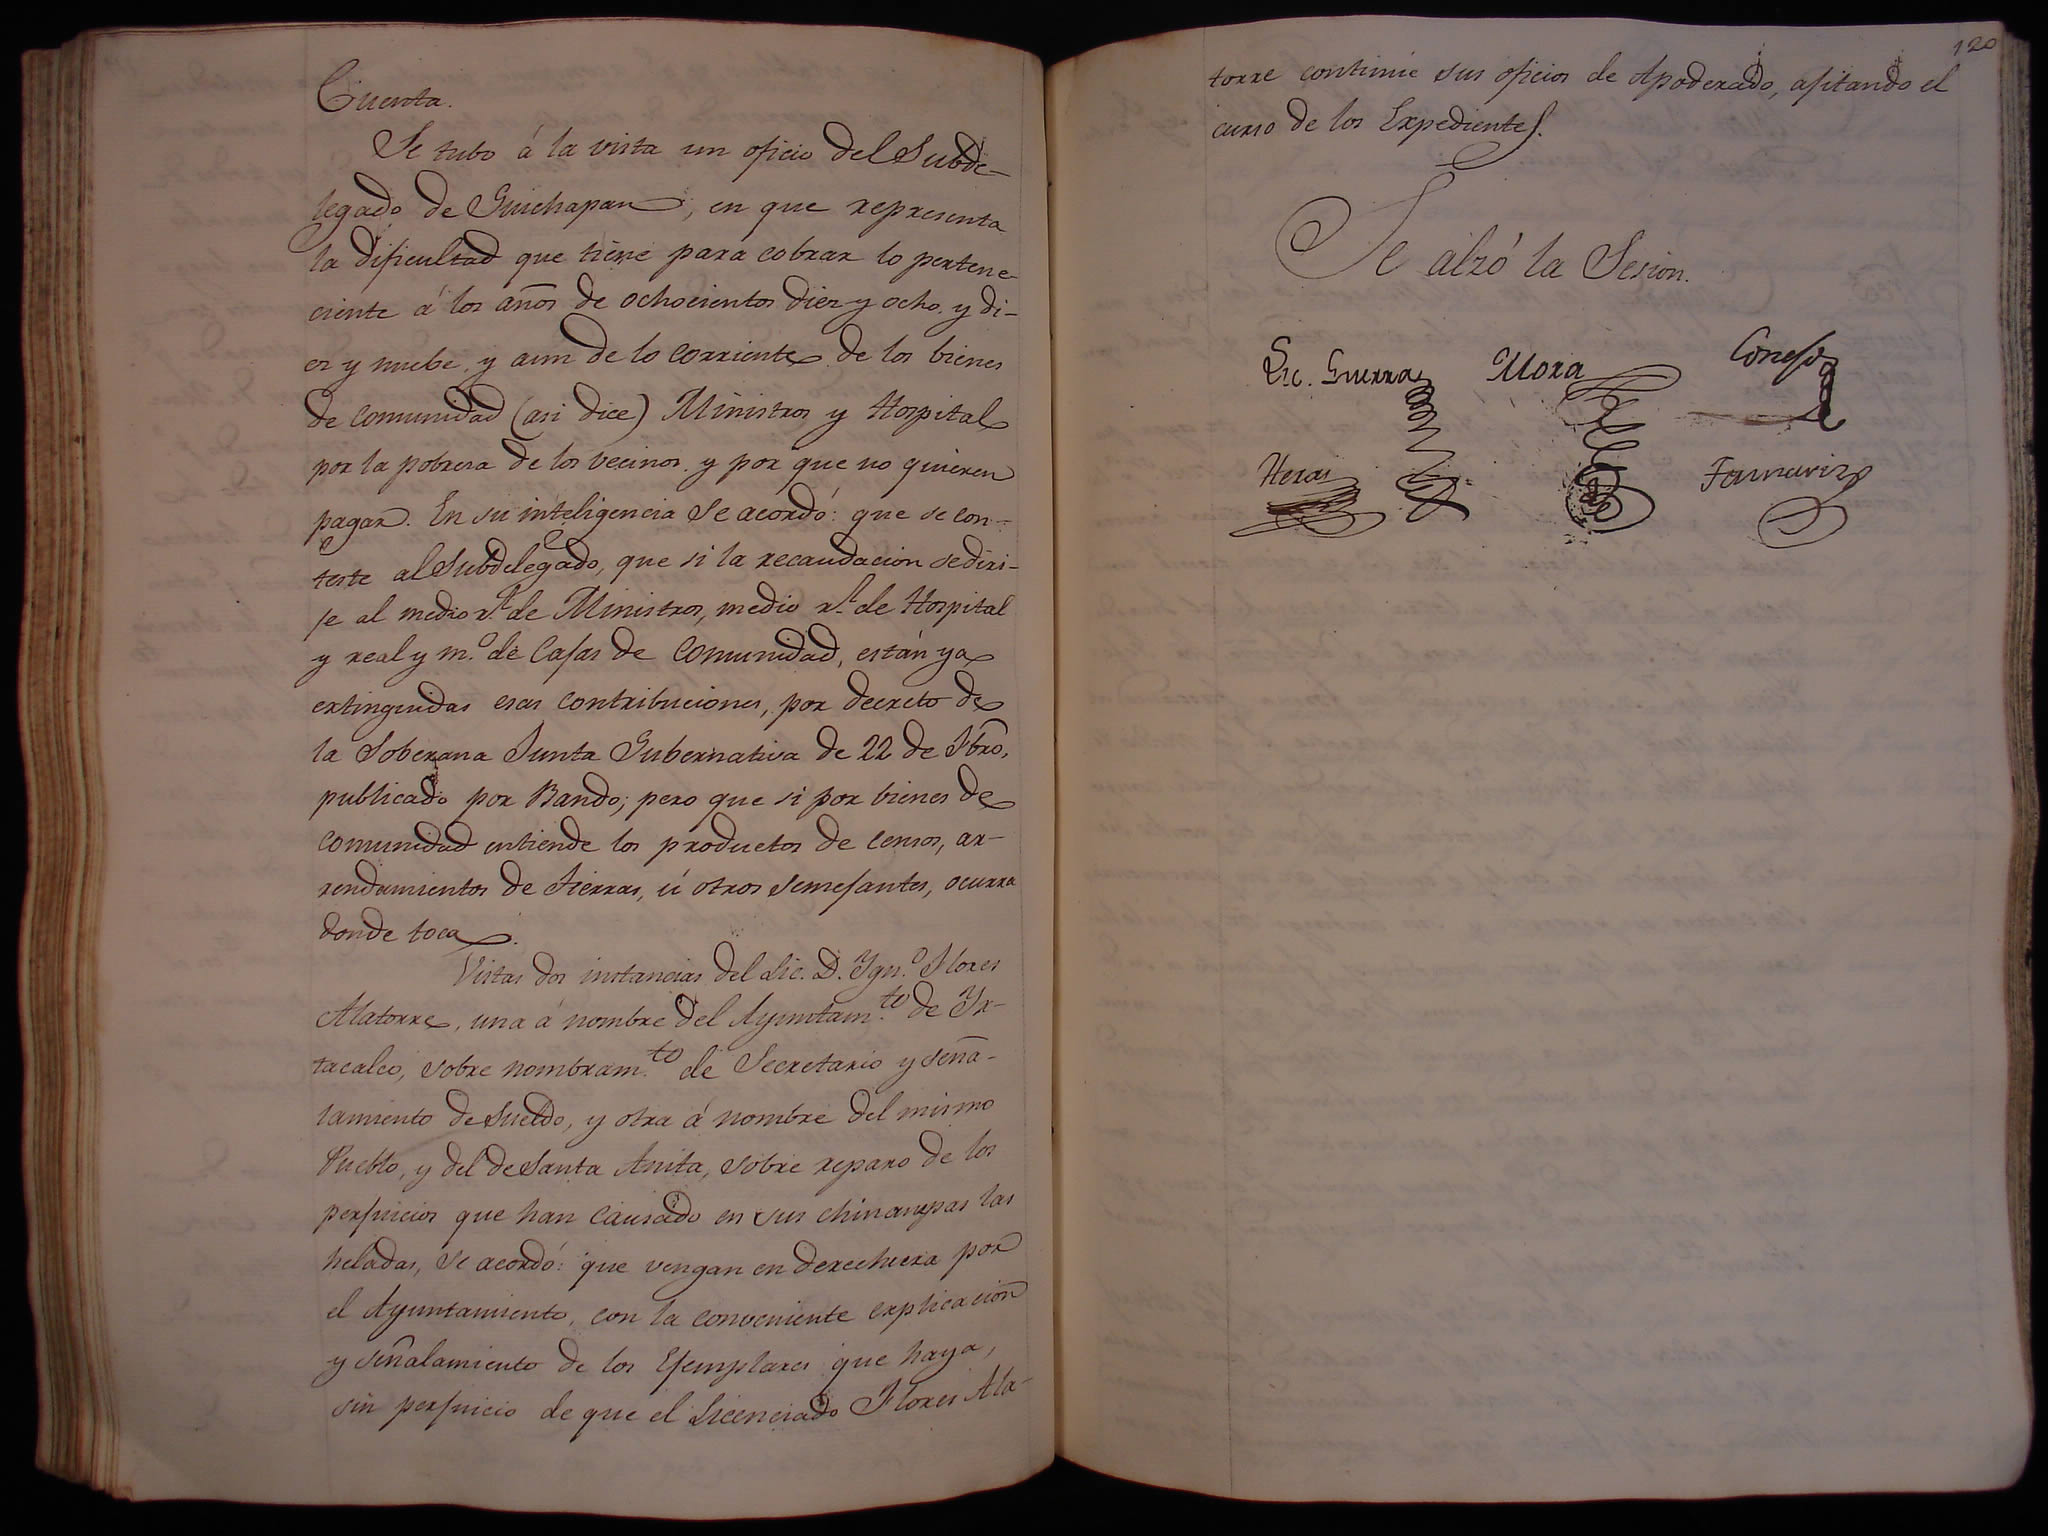 Cuenta.
Se tubo á la vista un oficio del Subde-
legado de Guichapan, en que representa
la dificultad que tiene para cobrar lo pertene-
ciente á los años de ochocientos diez y ocho, y di-
ez y nuebe, y aun de lo corriente de los bienes
de comunidad (asi dice) Ministros y Hospital
por la pobreza de los vecinos, y por que no quieren
pagar. En su inteligencia se acordó: que se con-
teste al Subdelegado, que si la recaudacion se diri-
je al medio rl. de Ministros, medio rl. de Hospital
y real y mo. de Casas de Comunidad, están ya
extinguidas esas contribuciones, por decreto de
la Soberana Junta Gubernativa de 22 de Fbro,
publicado por Bando; pero que si por bienes de
comunidad entiende los productos de censos, ar-
rendamientos de tierras, ú otros semejantes, ocurra
donde toca.
Vistas dos instancias del Lic. D. Ygno. Flores
Alatorre, una á nombre del Ayuntamto. de Yx-
tacalco, sobre nombramto. de Secretario y seña-
lamiento de sueldo, y otra á nombre del mismo
Pueblo, y del de Santa Anita, sobre reparo de los
perjuicios que han causado en sus chinampas las
heladas, se acordó: que vengan en derechura por
el Ayuntamiento, con la conveniente explicacion
y señalamiento de los Ejemplares que haya,
sin perjuicio de que el Licenciado Flores Ala-
120
torre continúe sus oficios de Apoderado, ajitando el
curso de los Expedientes.
Se alzó la Sesion.
Lic. Guerra Mora Conejo
Heras Tamariz